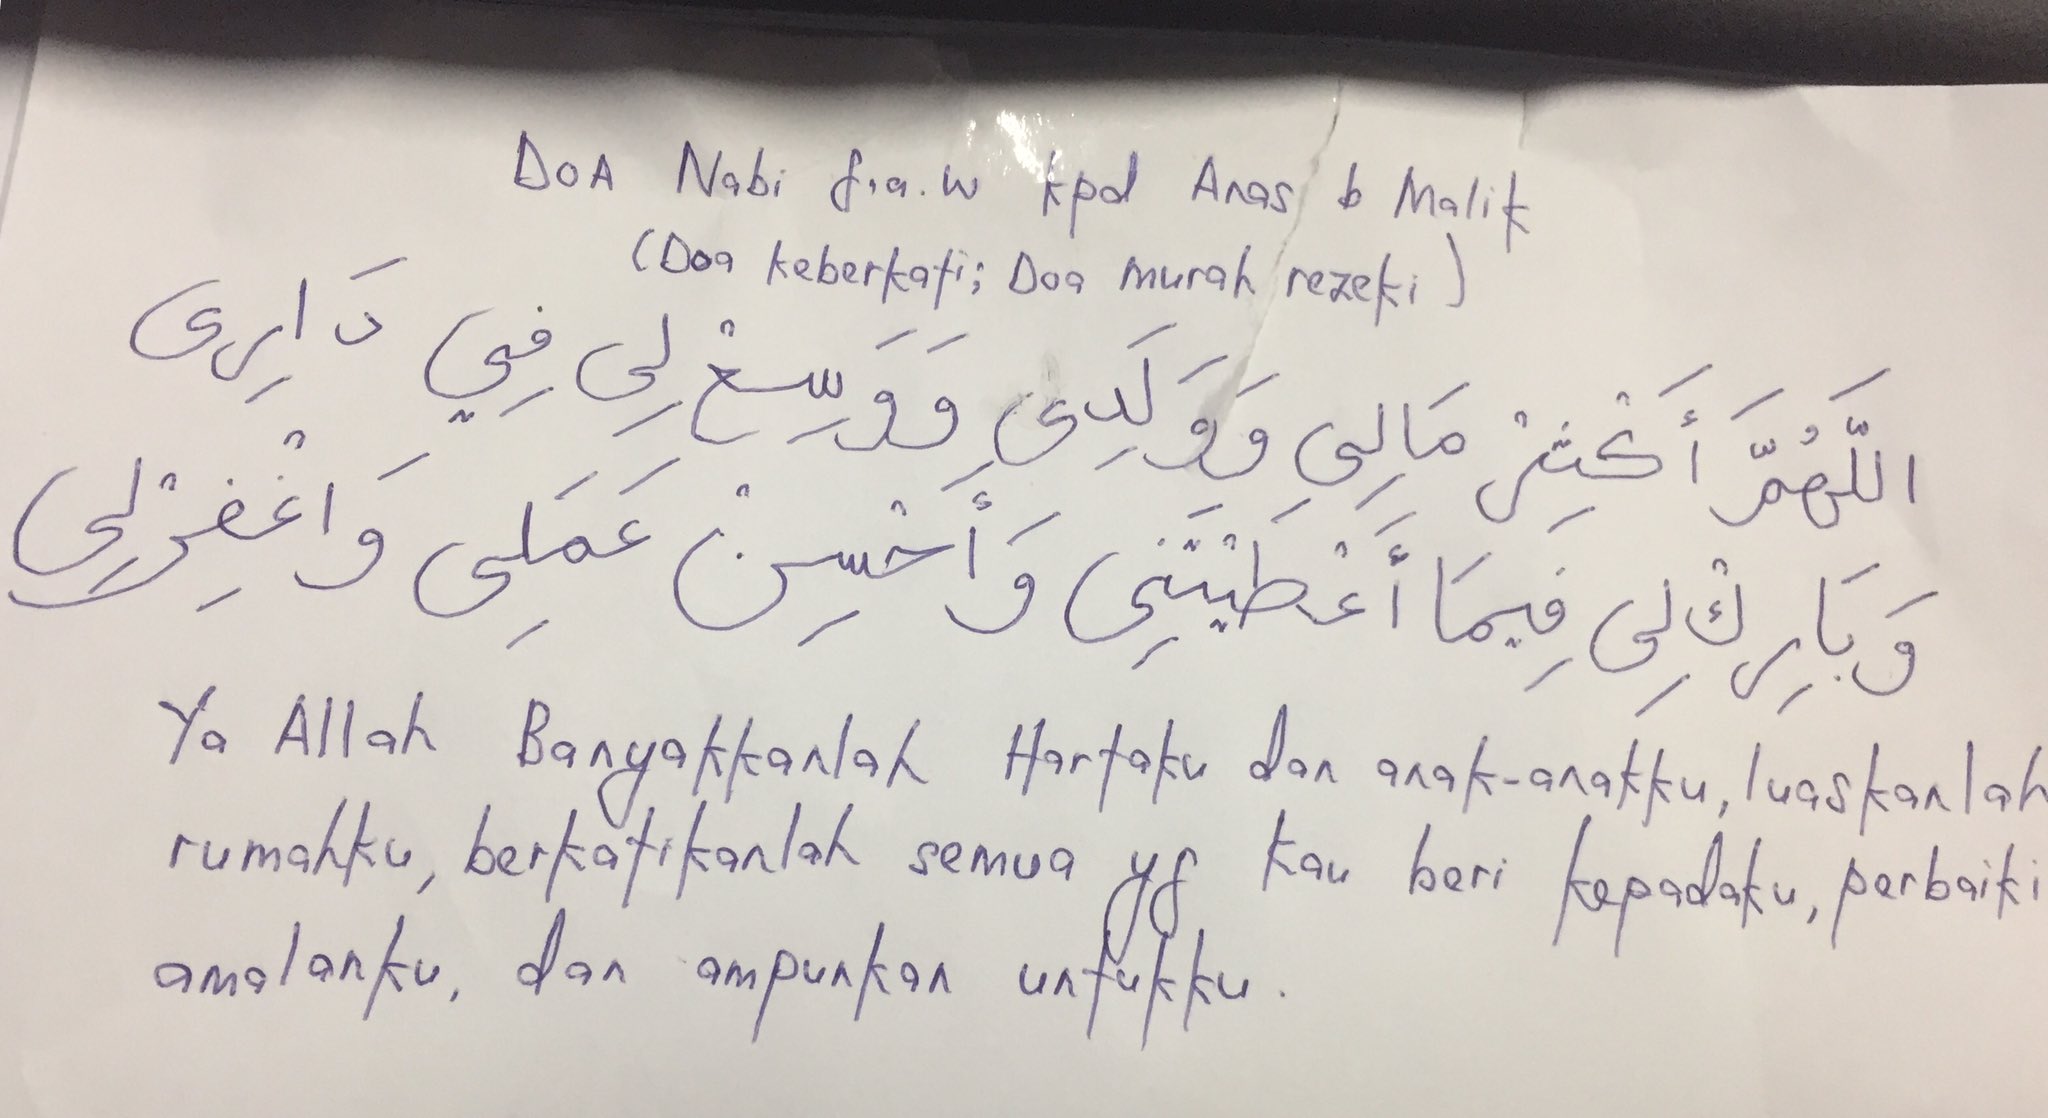 DOA Nabi s.a.w kpd Anas b Malik
(Doa keberkati; Doa murah rezeki)
اللَّهُمَّ أَكْثِرْ مَالِي وَوَلَدِى وَوَسِعْ لِى فِي دَارِى
وَبَارِكْ لِى فِيمَا أَعْطَيْتَنِى وَأَحْسِنْ عَمَلِى وَاغْفِرْلِى
Ya Allah Banyakkanlah Hartaku dan anak-anakku, luaskanlah
rumahku, berkatikanlah semua yg kau beri kepadaku, perbaiki
amalanku, dan ampunkan untukku.